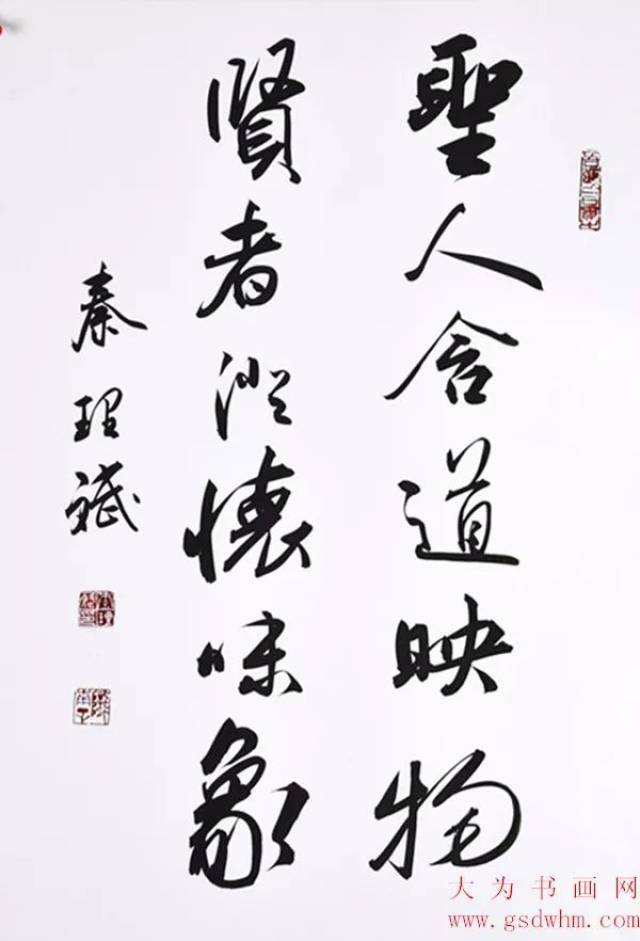 聖人含道映物
賢者澄懷味象
秦理斌
大为书画网
www.gsdwhm.com